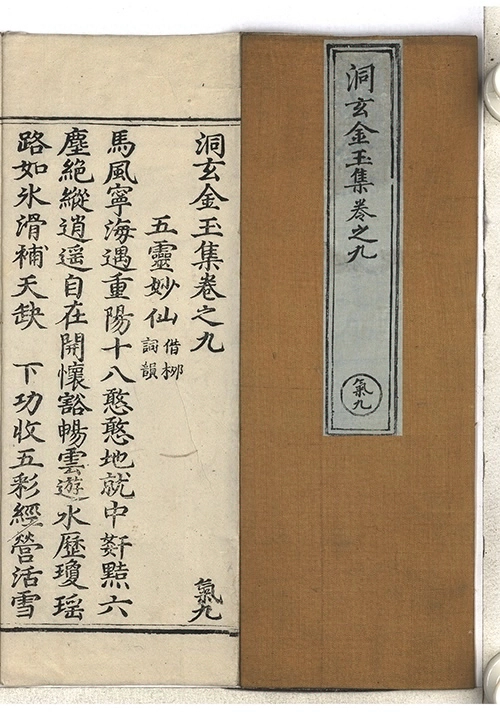 洞玄金玉集卷之九
氣九
洞玄金玉集卷之九 氣九
五靈妙仙 借柳詞韻
馬風寧海遇重陽十八憨憨地就中奸黠六
塵絕縱逍遥自在開懷豁暢雲遊水歷瓊瑶
路如氷滑補天缺 下功收五彩經營活雪